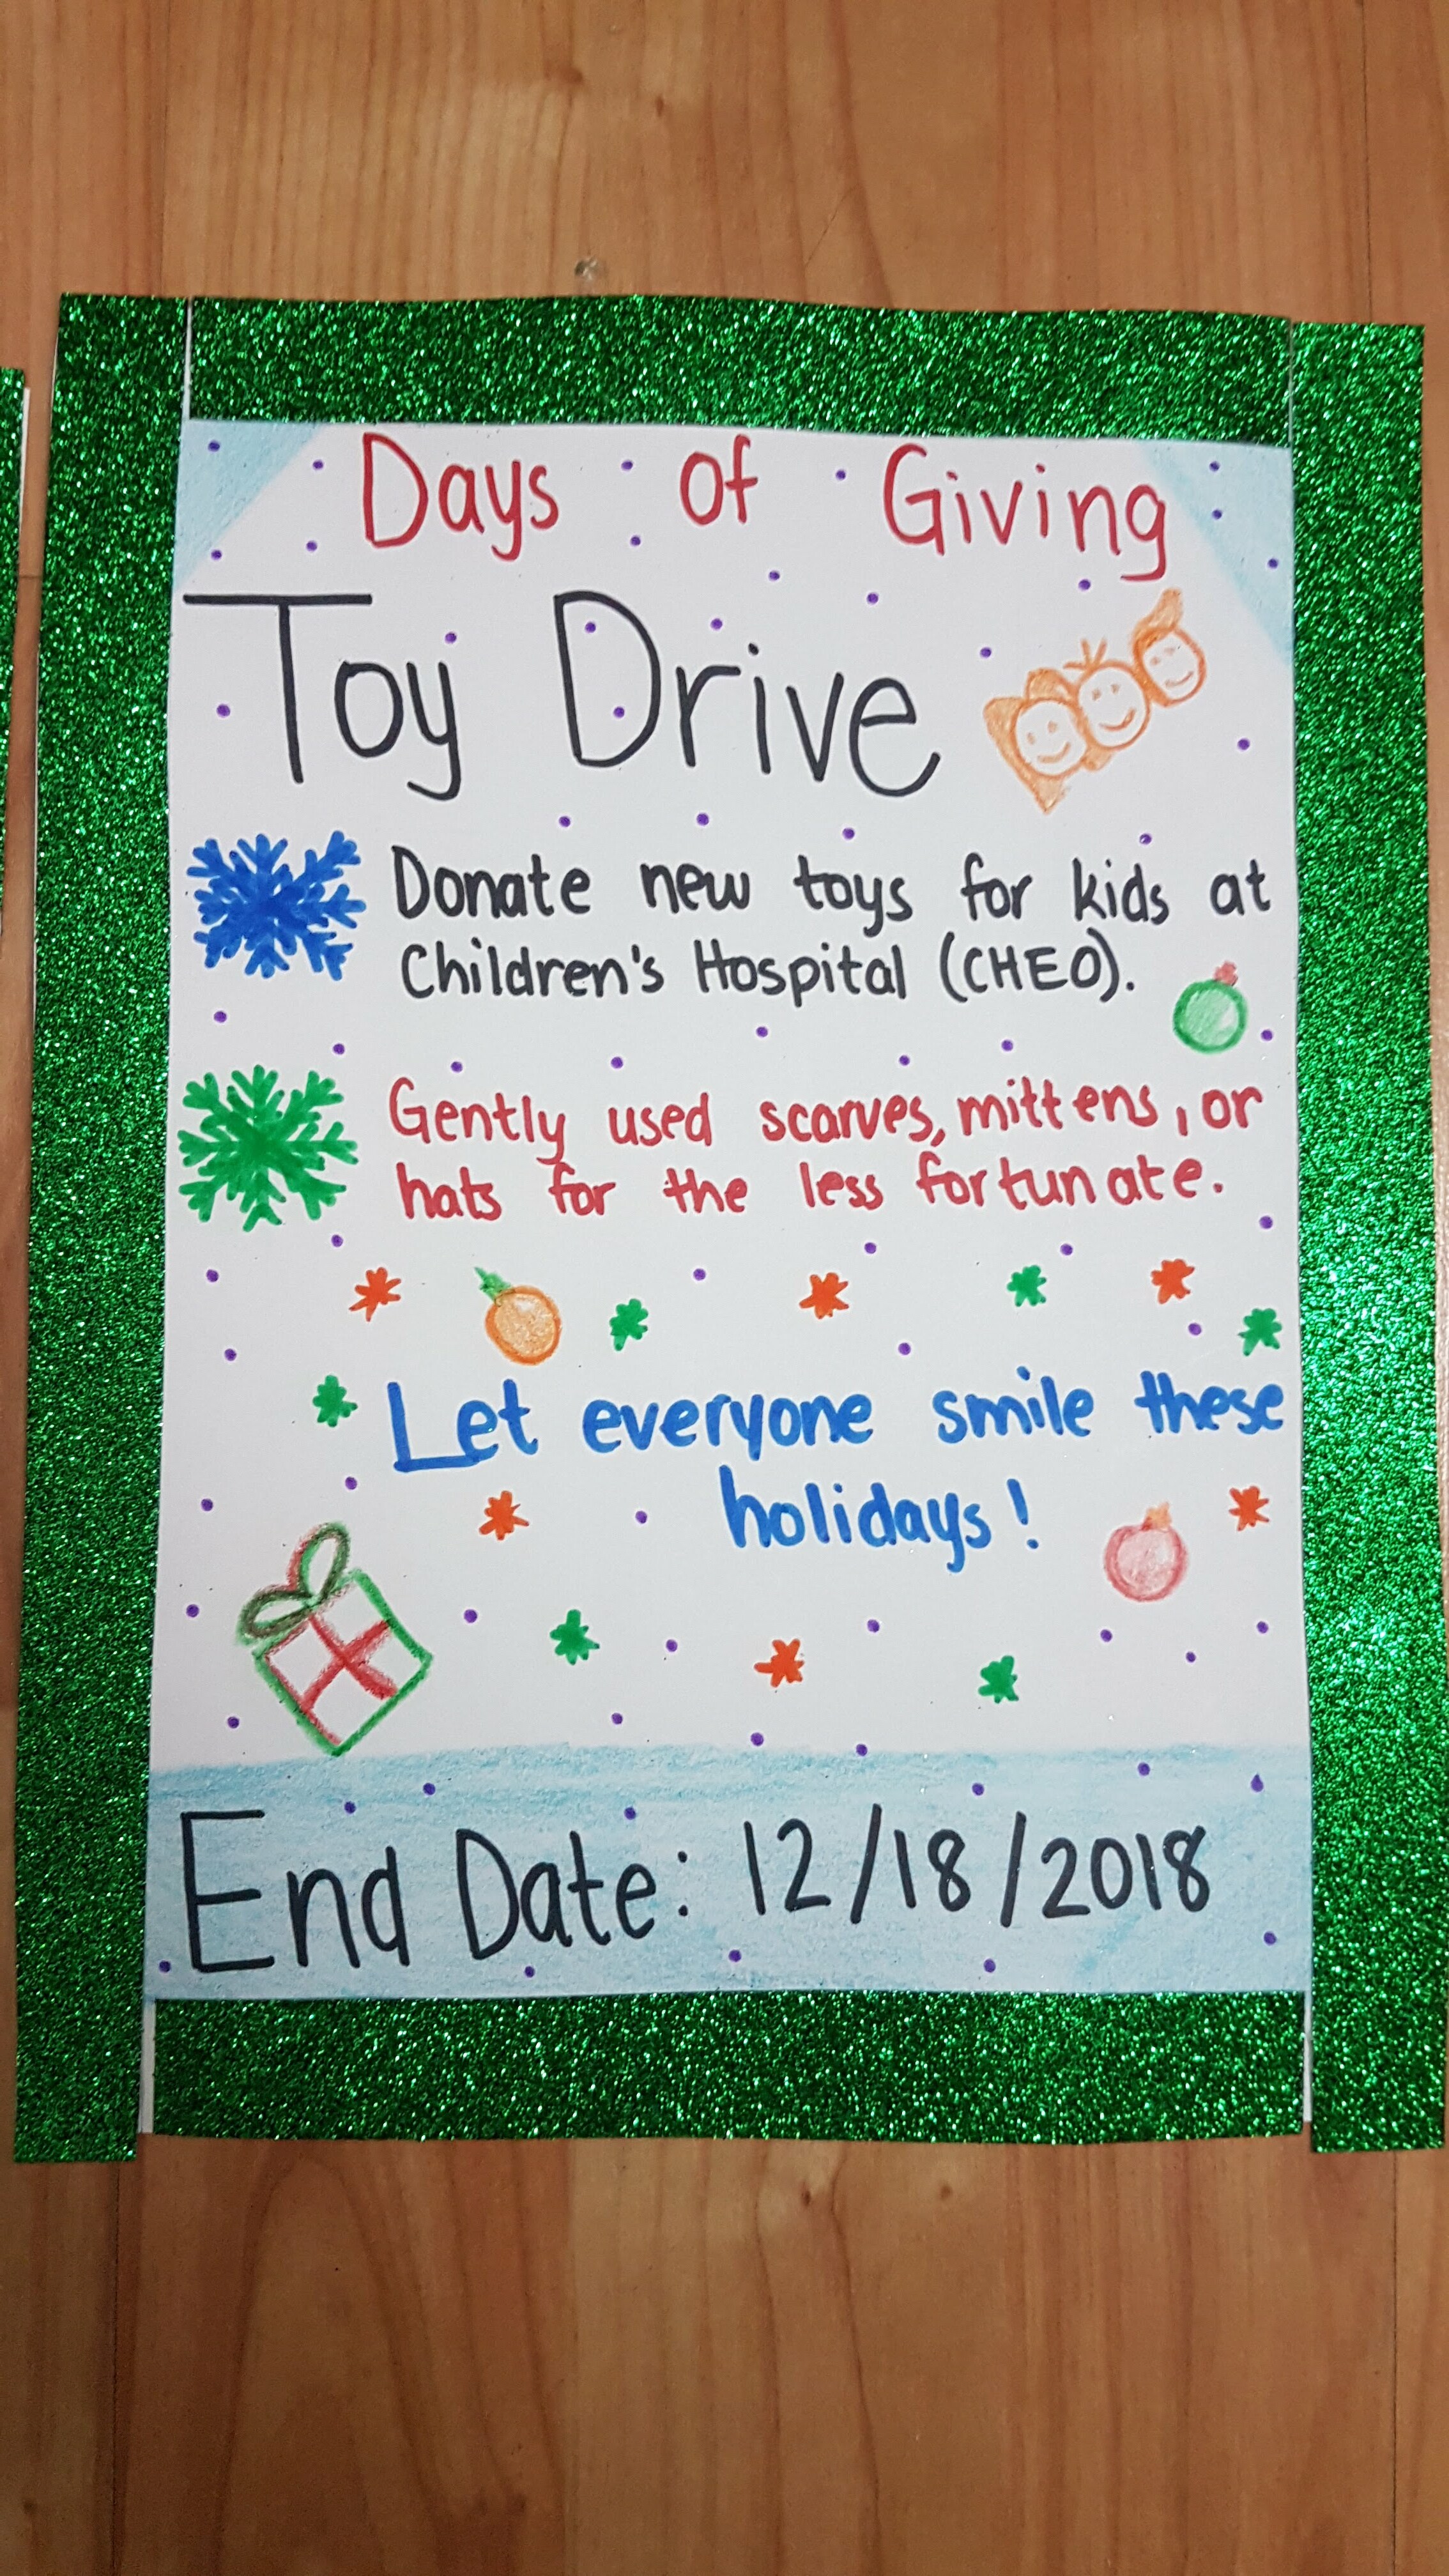 Days of Giving
Toy Drive
Donate new toys for kids at
Children's Hospital (CHEO).
Gently used scarves, mittens, or
hats for the less fortunate.
Let everyone smile these
holidays!
End Date: 12/18/2018